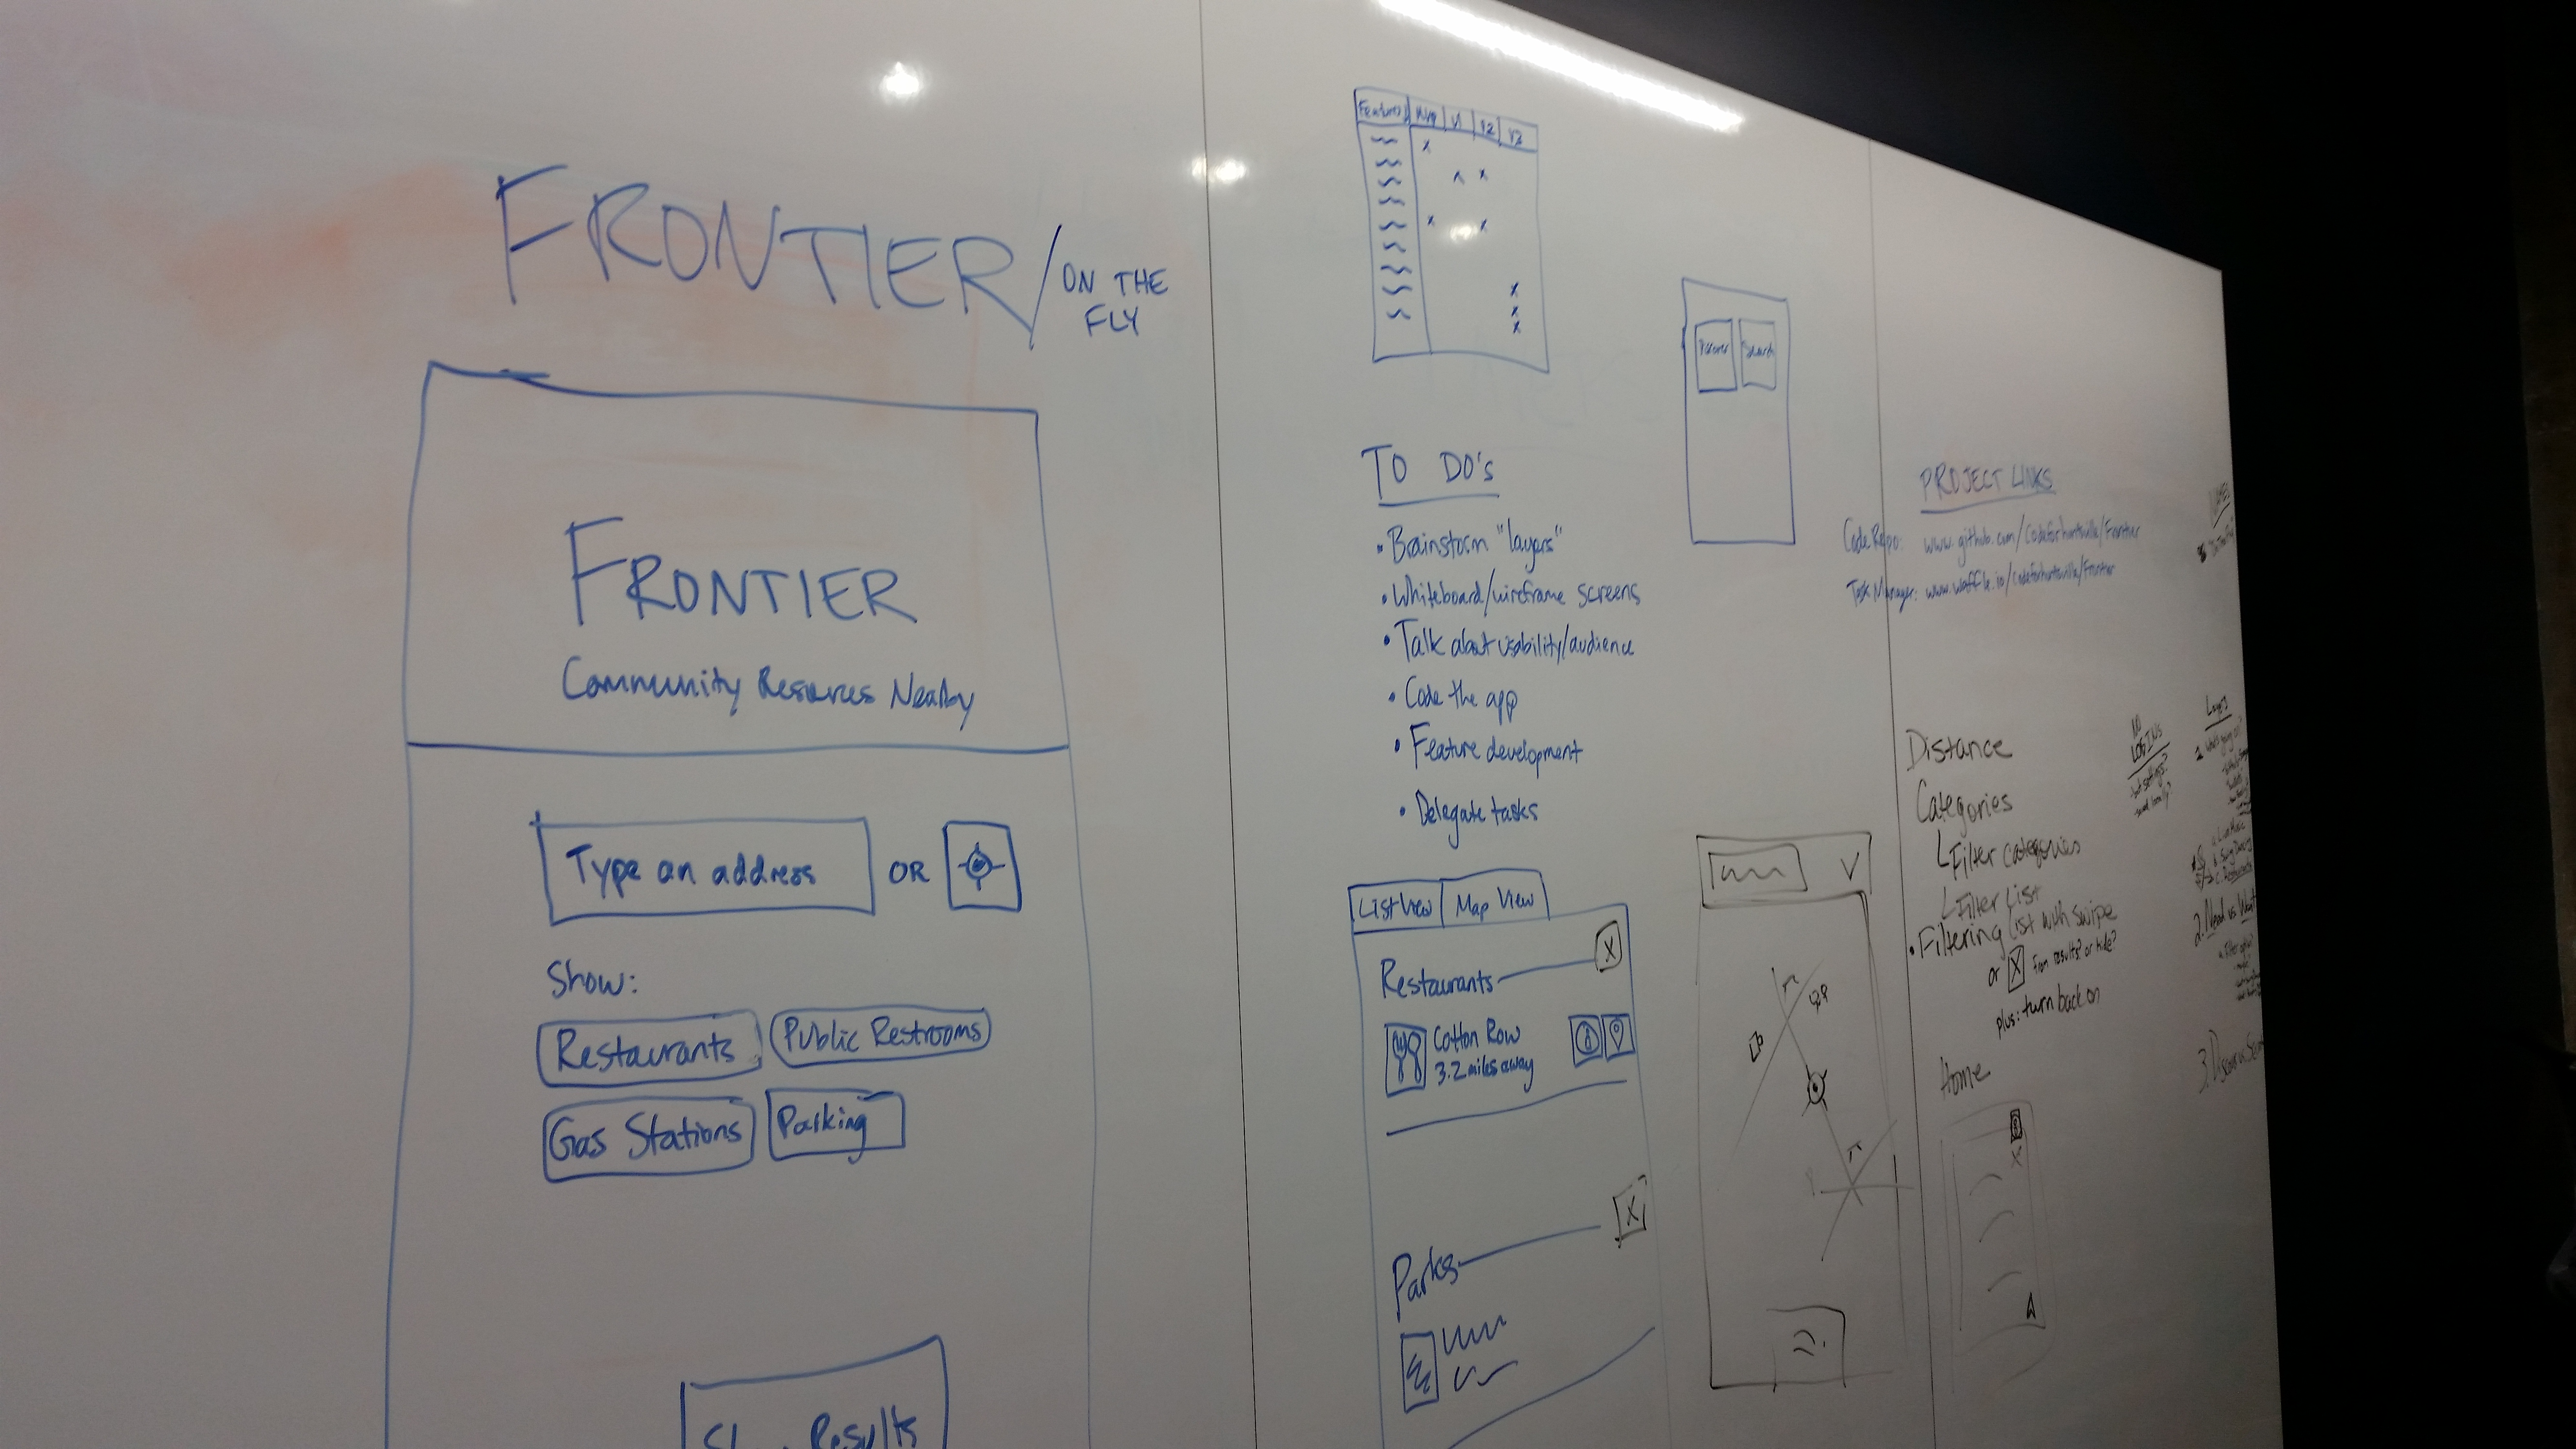 FRONTIER/ON THE
FLY
FRONTIER
Community Resources Nearby
Type an address OR
Show:
Restaurants Public Restrooms
Gas Stations Parking
Results
Features MVP V1 V2 V3
x
x
x x
x
x
x
Search
TO DO's
• Brainstorm "layers"
• Whiteboard/wireframe screens
• Talk about usability/audience
• Code the app
• Feature development
• Delegate tasks
List View Map View
Restaurants X
Cotton Row
3.2 miles away
Parks X
PROJECT LINKS
Code Repo: www.github.com/Codeforhuntsville/Frontier
Task Manager: www.waffle.io/codeforhuntsville/Frontier
Distance
Categories
Filter categories
Filter List
• Filtering list with swipe
or X from results? or hide?
plus: turn back on
Home
NO
LOGINS
Layers
2. Need vs Want
3.